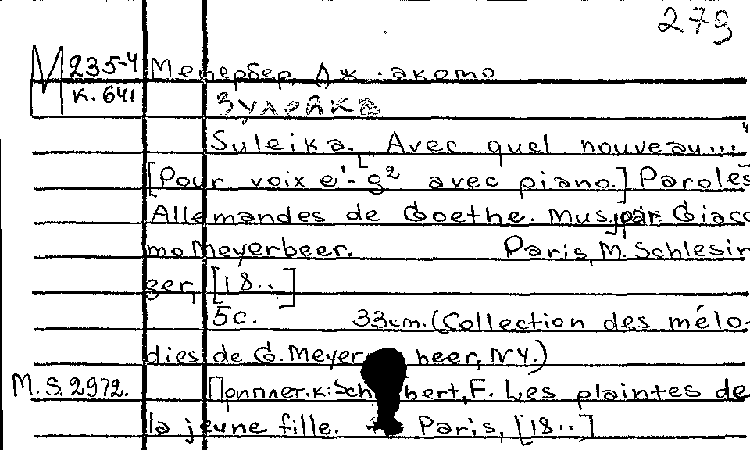 279
М 235-4 Мейербер, Дж акомо
К. 641 Зулейка
Suleika. Avec quel nouveau...
[Pour voix e¹-g² avec piano.] Paroles
Allemandes de Goethe. Mus. par Giaco
mo Meyerbeer. Paris, M. Schlesin
ger, [18..]
5c. 33cm. (Collection des mélo-
dies de G. Meyer beer, N4.)
M.S. 2972. Приплет. к: Sch bert, F. Les plaintes de
la jeune fille. Paris, [18..]